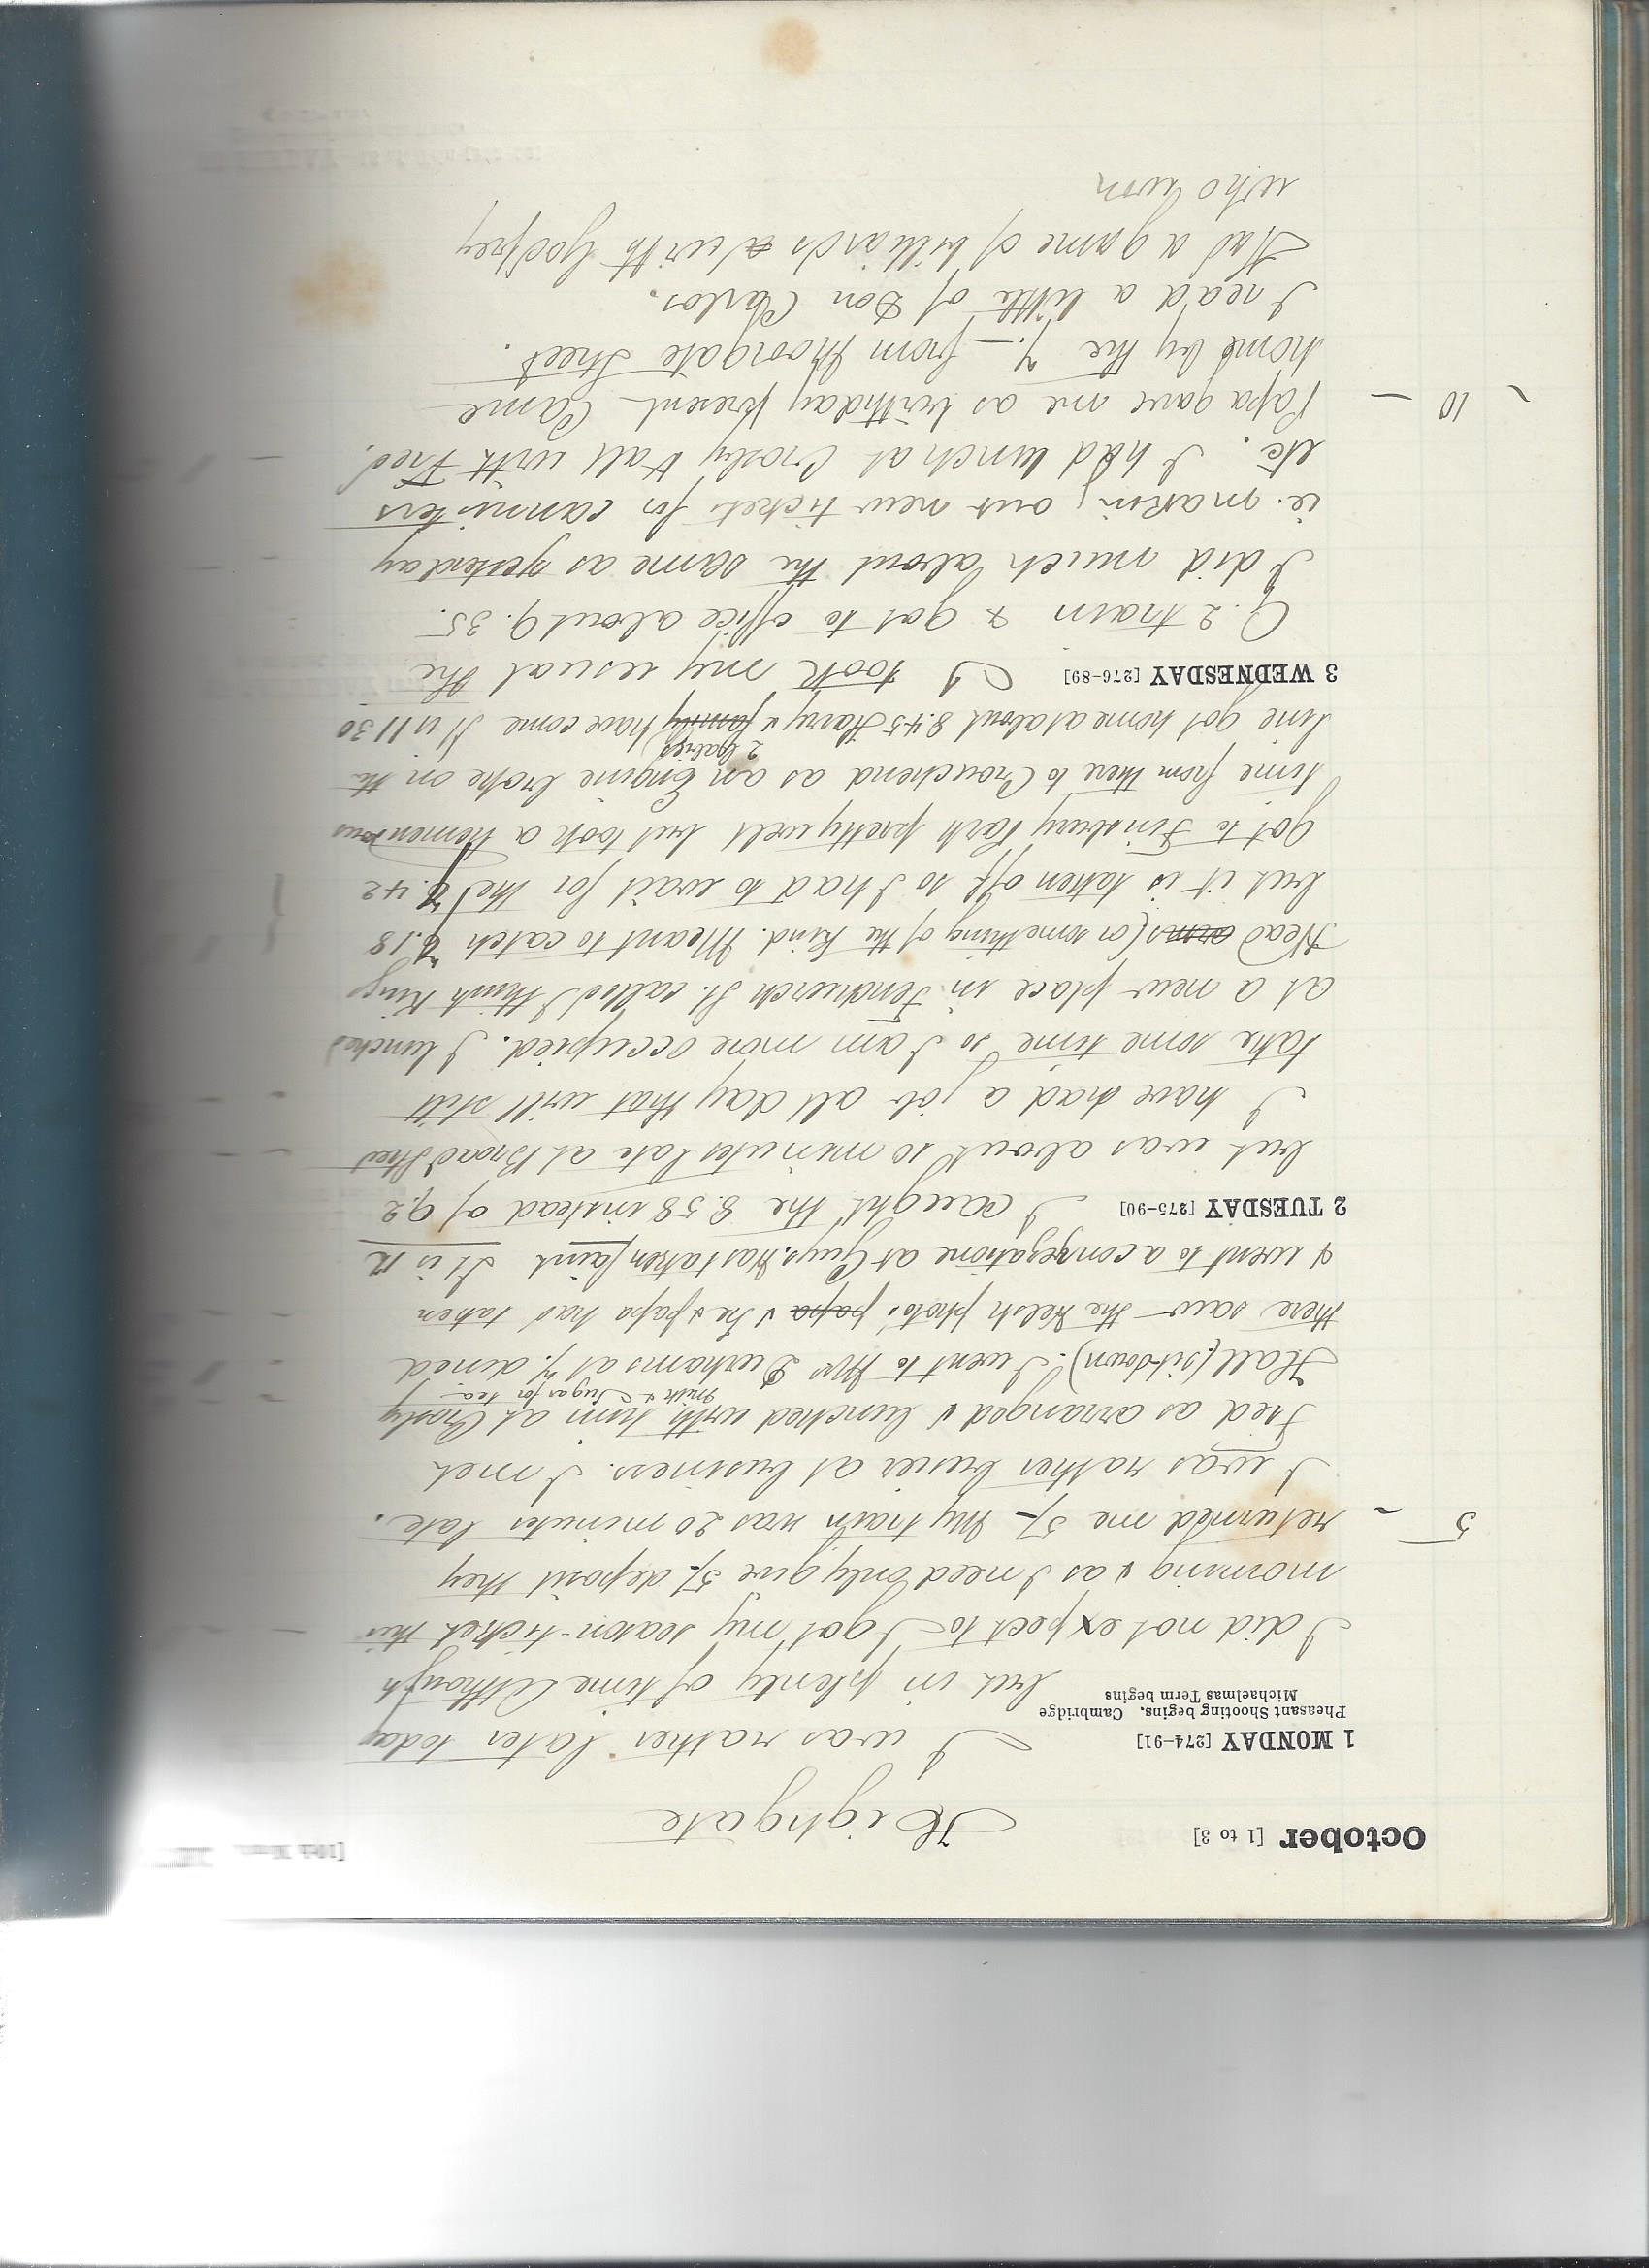 October [1 to 3]
Highgate
1 MONDAY [274-91]
Pheasant Shooting begins. Cambridge
Michaelmas Term begins
I was rather later today
but in plenty of time although
I did not expect to I got my season-ticket this
morning & as I need only give 5/- deposit they
5 - returned me 5/- My train was 20 minutes late.
I was rather busier at business. I met
Fred as arranged & lunched with him at Crosby
Milk & Sugar for tea
Hall (sit-down). I went to Mr Durhams at 7. dined
there saw the Welsh photos papa & he & papa had taken
& went to a congregatione at Guys. Has taken faint It is 12
2 TUESDAY [275-90]
I caught the 8.58 instead of 9.2
but was about 10 minutes late at Broad Street
I have had a job all day that will still
take some time so I am more occupied. I lunched
at a new place in Fenchurch St. called I think Kings
Head arms (or something of the kind. Meant to catch 7.18
but it is taken off so I had to wait for the 7.42
got to Finsbury Park pretty well but took a tremendous
time from there to Crouchend as an Engine broke on the
2 babies
line got home at about 8.45 Harry & family have come It is 11 30
3 WEDNESDAY [276-89]
I took my usual the
9.2 train & got to office about 9.35.
I did much about the same as yesterday
ie. making out new tickets for cannisters
etc. I had lunch at Crosby Hall with Fred.
10 - Papa gave me as birthday present Came
home by the 7.- from Moorgate Street.
I read a little of Don Carlos.
Had a game of billiards with Godfrey
who won